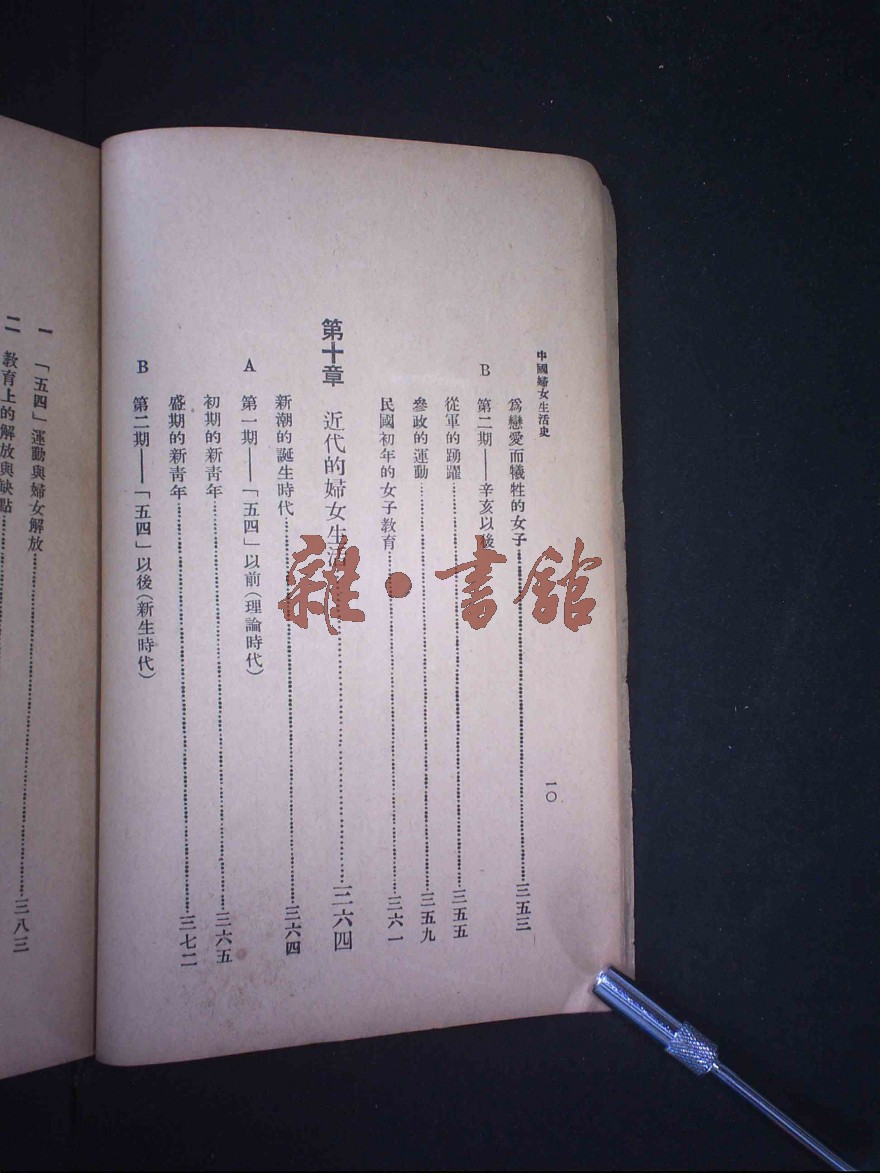 中國婦女生活史
一〇
為戀愛而犧牲的女子……三五三
B 第二期——辛亥以後
從軍的踴躍……三五五
參政的運動……三五九
民國初年的女子教育……三六一
第十章 近代的婦女生活……三六四
新潮的誕生時代……三六四
A 第一期——「五四」以前(理論時代)
初期的新青年……三六五
盛期的新青年……三七二
B 第二期——「五四」以後(新生時代)
一 「五四」運動與婦女解放……三八三
二 教育上的解放與缺點……
雜·書館